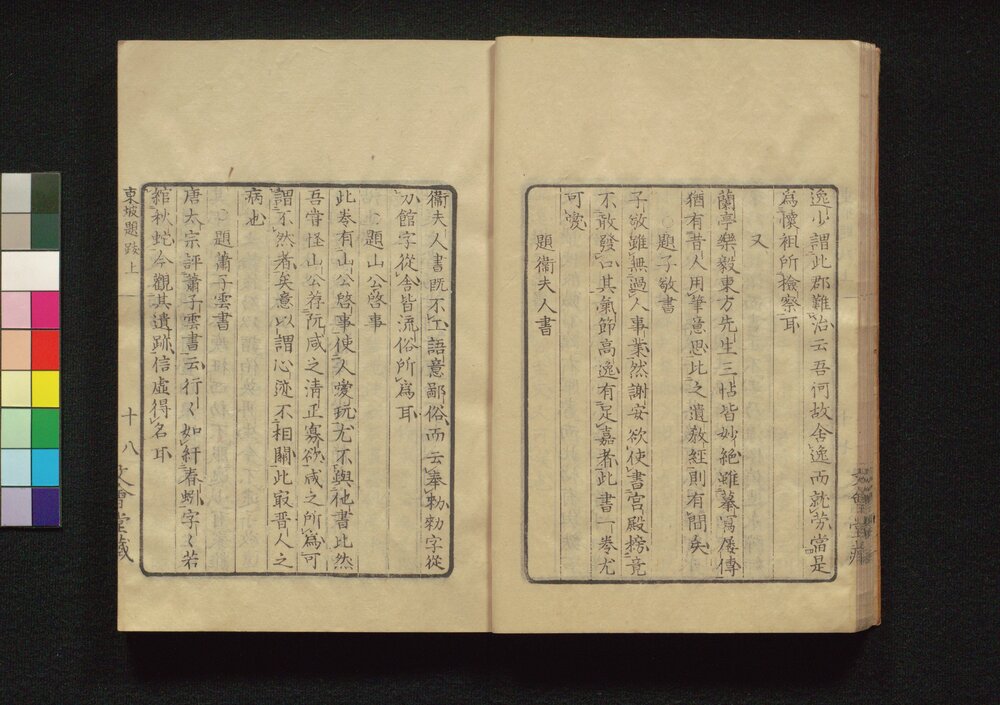 逸少謂此郡難治云吾何故舍逸而就勞當是
為懷祖所檢察耳
又
蘭亭樂毅東方先生三帖皆妙絕雖摹寫屢傳
猶有昔人用筆意思比之遺教經則有間矣
題子敬書
子敬雖無過人事業然謝安欲使書宮殿榜竟
不敢發口其氣節高逸有足嘉者此書一卷尤
可愛
題衞夫人書
衞夫人書既不工語意鄙俗而云奉勑勑字從
力館字從舍皆流俗所為耳
題山公啓事
此卷有山公啓事使人愛玩尤不與他書比然
吾嘗怪山公荐阮咸之清正寡欲咸之所為可
謂不然者矣意以謂心迹不相關此最晉人之
病也
題蕭子雲書
唐太宗評蕭子雲書云行〱如紆春蚓字〱若
綰秋蛇今觀其遺跡信虛得名耳
東坡題跋上
十八
文會堂藏